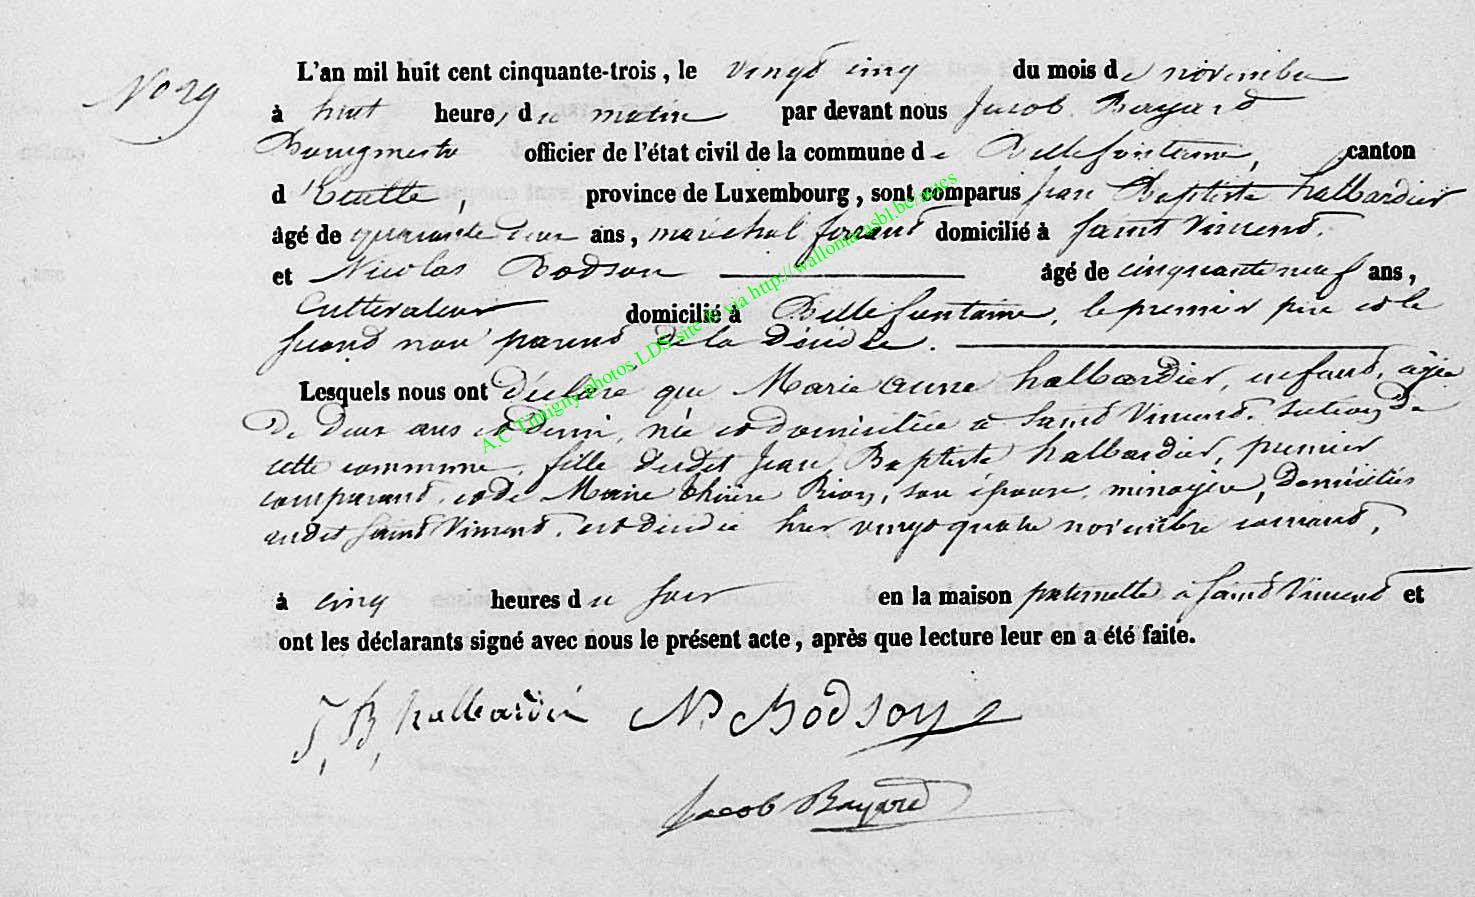 No 29
L'an mil huit cent cinquante-trois, le vingt cinq du mois de novembre
à huit heures du matin par devant nous Jacob Bayard
Bourgmestre officier de l'état civil de la commune de Bellefontaine, canton
d'Etalle, province de Luxembourg, sont comparus Jean Baptiste halbardier
âgé de quarante deux ans, maréchal ferrant domicilié à Saint Vincent.
et Nicolas Bodson âgé de cinquante neuf ans,
Cultivateur domicilié à Bellefontaine, le premier père et le
second non parent de la décédée.
Lesquels nous ont déclaré que Marie anne halbardier, enfant, agée
de deux ans et demi, née et domiciliée à Saint Vincent. section de
cette commune, fille dudit Jean Baptiste halbardier, premier
comparant, et de Marie thérèse Rion, son épouse, ménagère, domiciliés
audit Saint Vincent, est décédée hier vingt quatre novembre courant,
à cinq heures du soir en la maison paternelle à Saint Vincent et
ont les déclarants signé avec nous le présent acte, après que lecture leur en a été faite.
J, B, halbardié N. Bodson
Jacob Bayard
A.C Tintigny photos LDS site via http://walloniasbl.be/actes